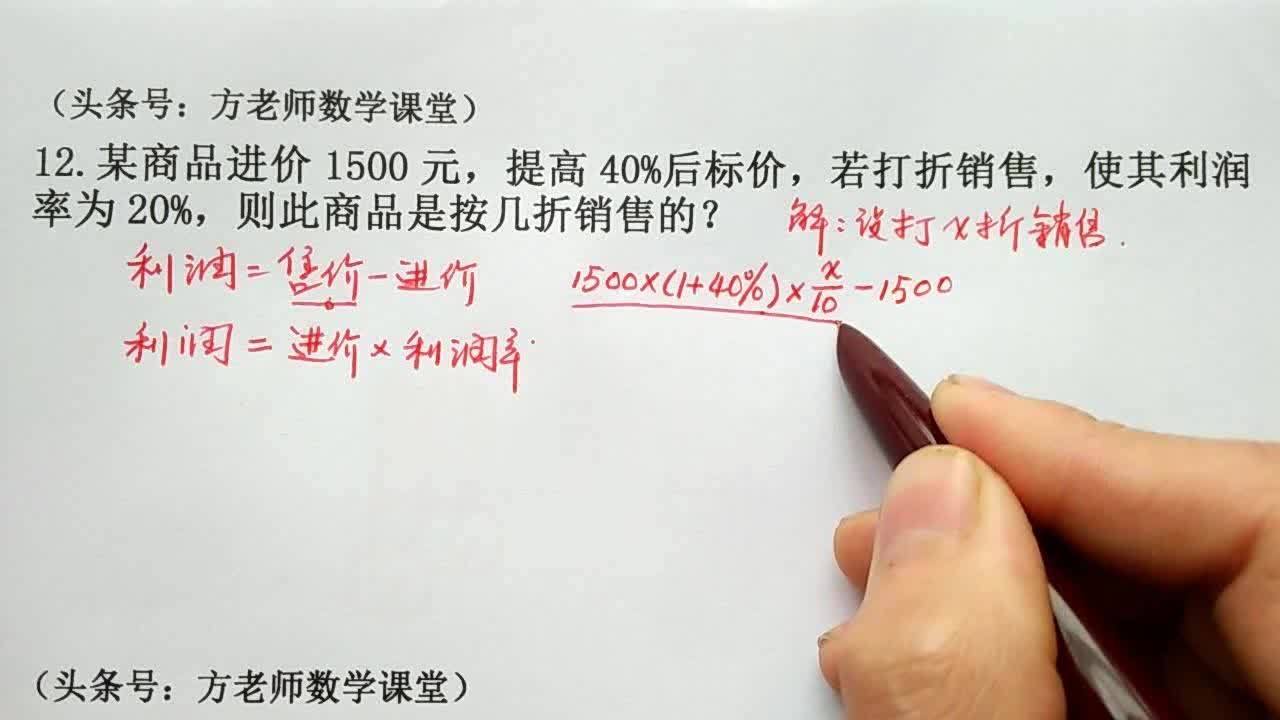 （头条号：方老师数学课堂）
12.某商品进价1500元，提高40%后标价，若打折销售，使其利润
率为20%，则此商品是按几折销售的？
解：设打x折销售.
利润＝售价－进价
1500×(1+40%)×x/10－1500
利润＝进价×利润率
（头条号：方老师数学课堂）